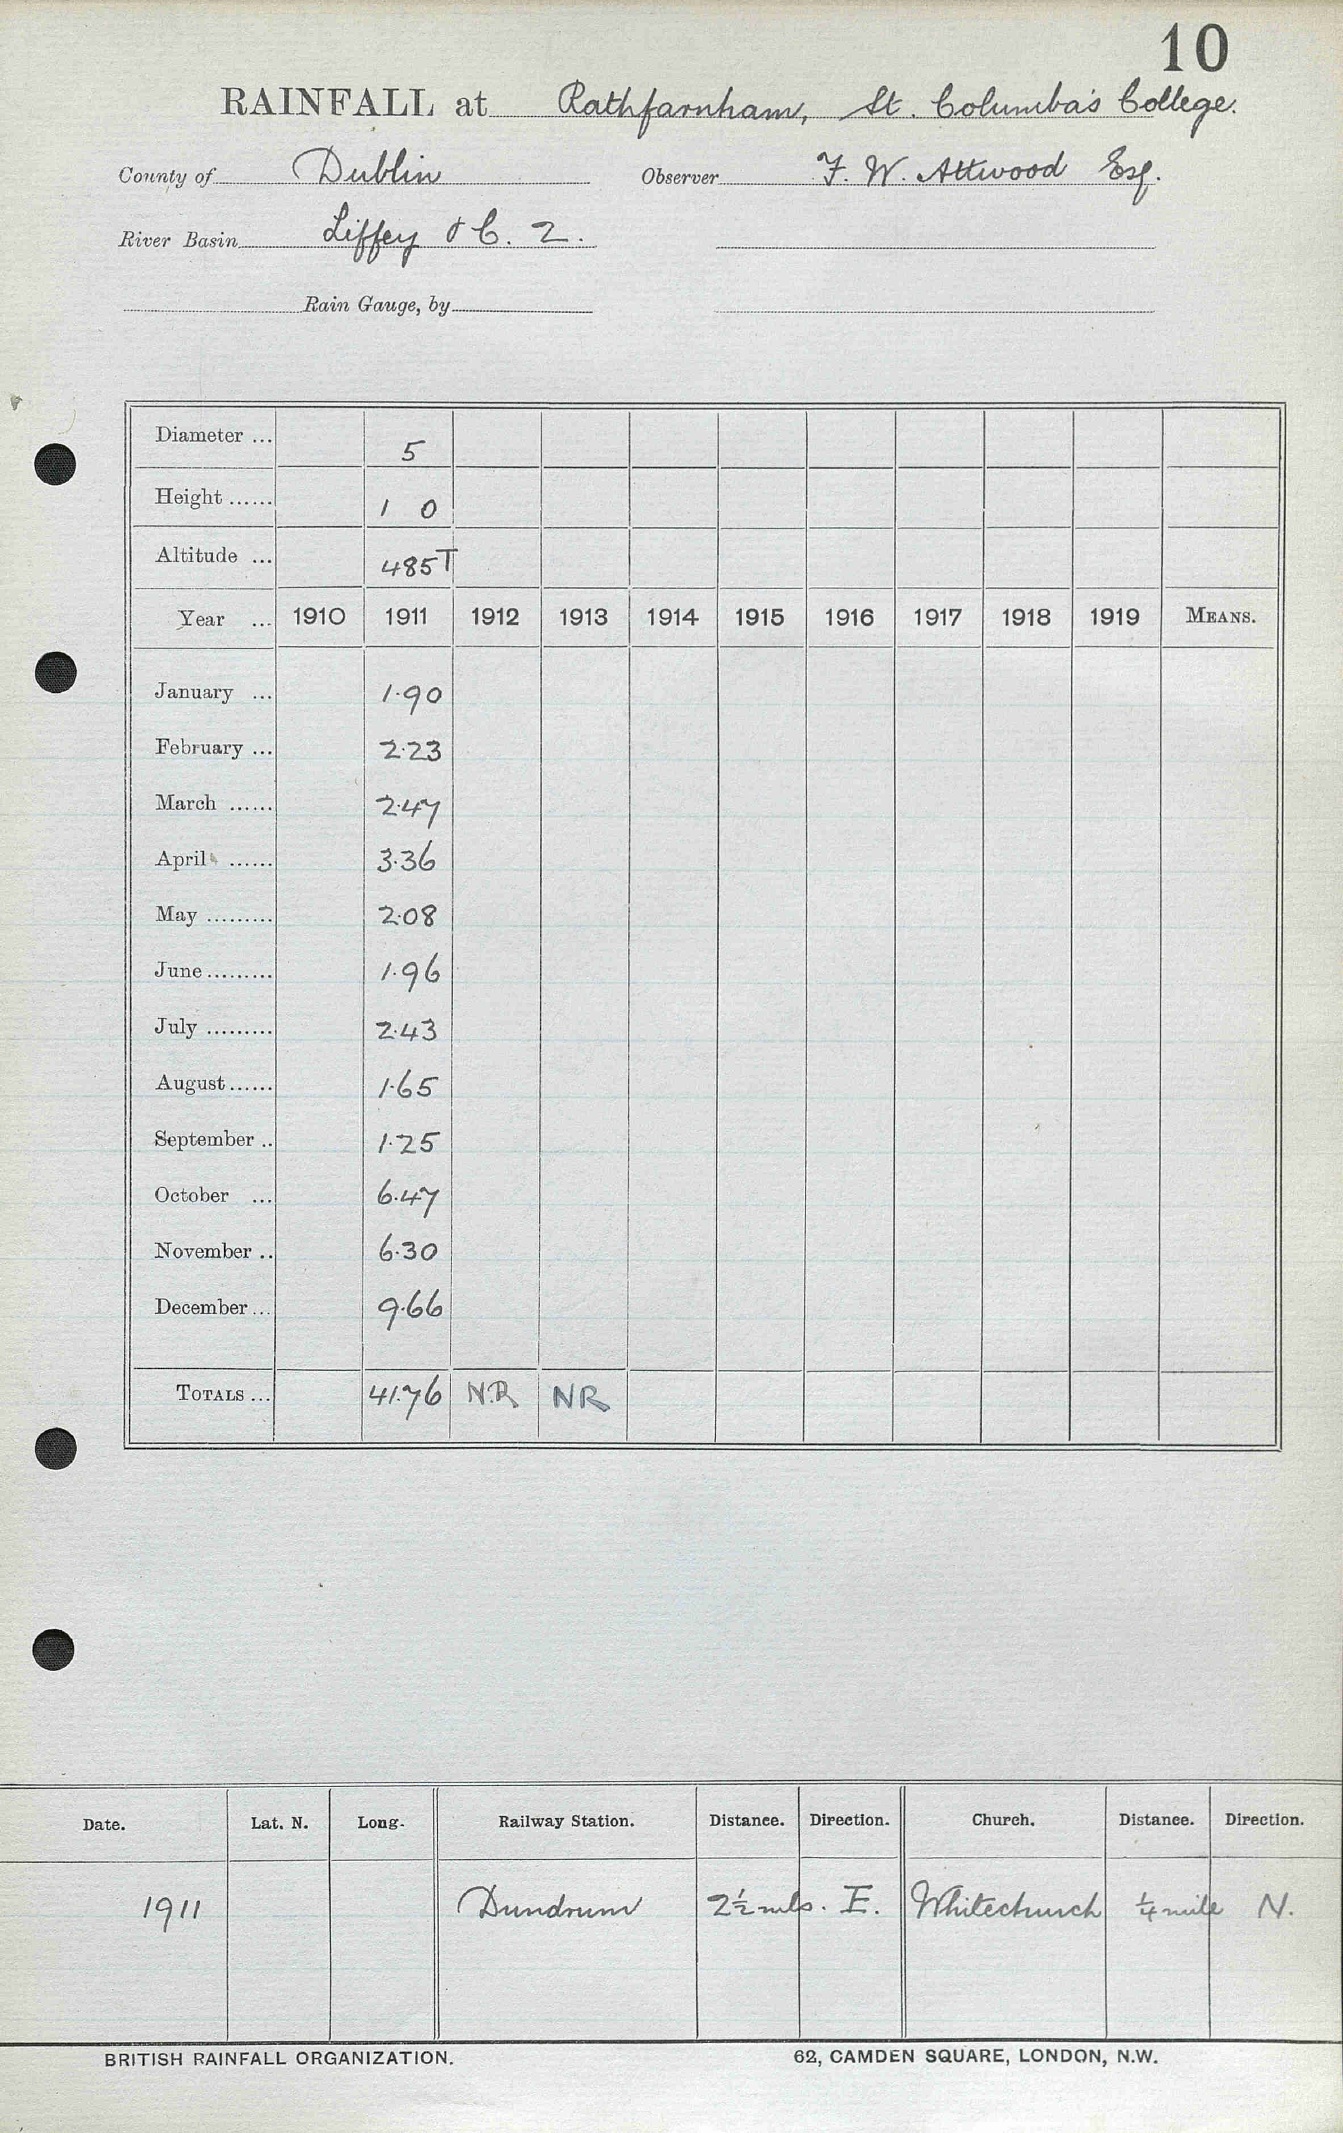 10
RAINFALL at Rathfarnham, St. Columba's College.
County of Dublin Observer F. W. Attwood Esq.
River Basin Liffey & C. 2.
Rain Gauge, by
Diameter ... 5
Height ...... 1 0
Altitude ... 485T
Year ... 1910 1911 1912 1913 1914 1915 1916 1917 1918 1919 MEANS.
January ... 1.90
February ... 2.23
March ...... 2.47
April ...... 3.36
May ......... 2.08
June ......... 1.96
July ......... 2.43
August ...... 1.65
September .. 1.25
October ... 6.47
November .. 6.30
December ... 9.66
TOTALS ... 41.76 N.R NR
Date. Lat. N. Long. Railway Station. Distance. Direction. Church. Distance. Direction.
1911 Dundrum 2½ mls. E. Whitechurch ¼ mile N.
BRITISH RAINFALL ORGANIZATION. 62, CAMDEN SQUARE, LONDON, N.W.